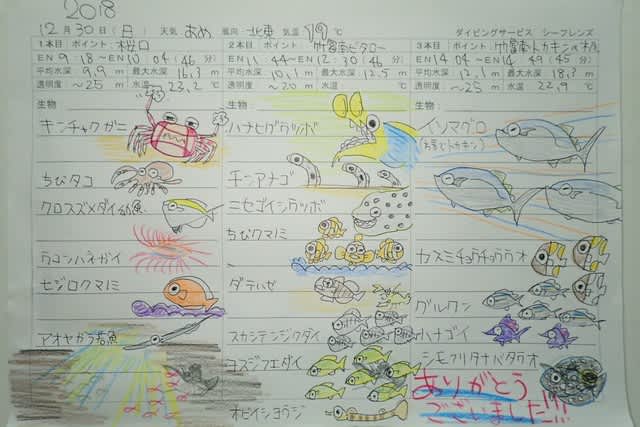 2018
12月30日(日) 天気 あめ 風向 北東 気温 19℃ ダイビングサービス シーフレンズ
1本目 ポイント 桜口
EN 9:18 〜EN 10:04 (46分)
平均水深 9,9 m 最大水深 16,3 m
透明度 〜25 m 水温 23,2℃
生物
キンチャクガニ
ちびタコ
クロスズメダイ幼魚
ウコンハネガイ
セジロクマノミ
アオヤガラ若魚
2本目 ポイント 竹富南ビタロー
EN 11:44 〜EN 12:30 (46分)
平均水深 10,1 m 最大水深 12,5 m
透明度 〜20 m 水温 22,9℃
生物
ハナヒゲウツボ
チンアナゴ
ニセゴイシウツボ
ちびクマノミ
ダテハゼ
スカシテンジクダイ
ヨスジフエダイ
オビイシヨウジ
3本目 ポイント 竹富南トカキンの根
EN 14:04 〜EN 14:49 (45分)
平均水深 12,1 m 最大水深 18,3 m
透明度 〜25 m 水温 22,9℃
生物
イソマグロ
カスミチョウチョウウオ
グルクン
ハナゴイ
シモフリタナバタウオ
ありがとう
ございました!!!